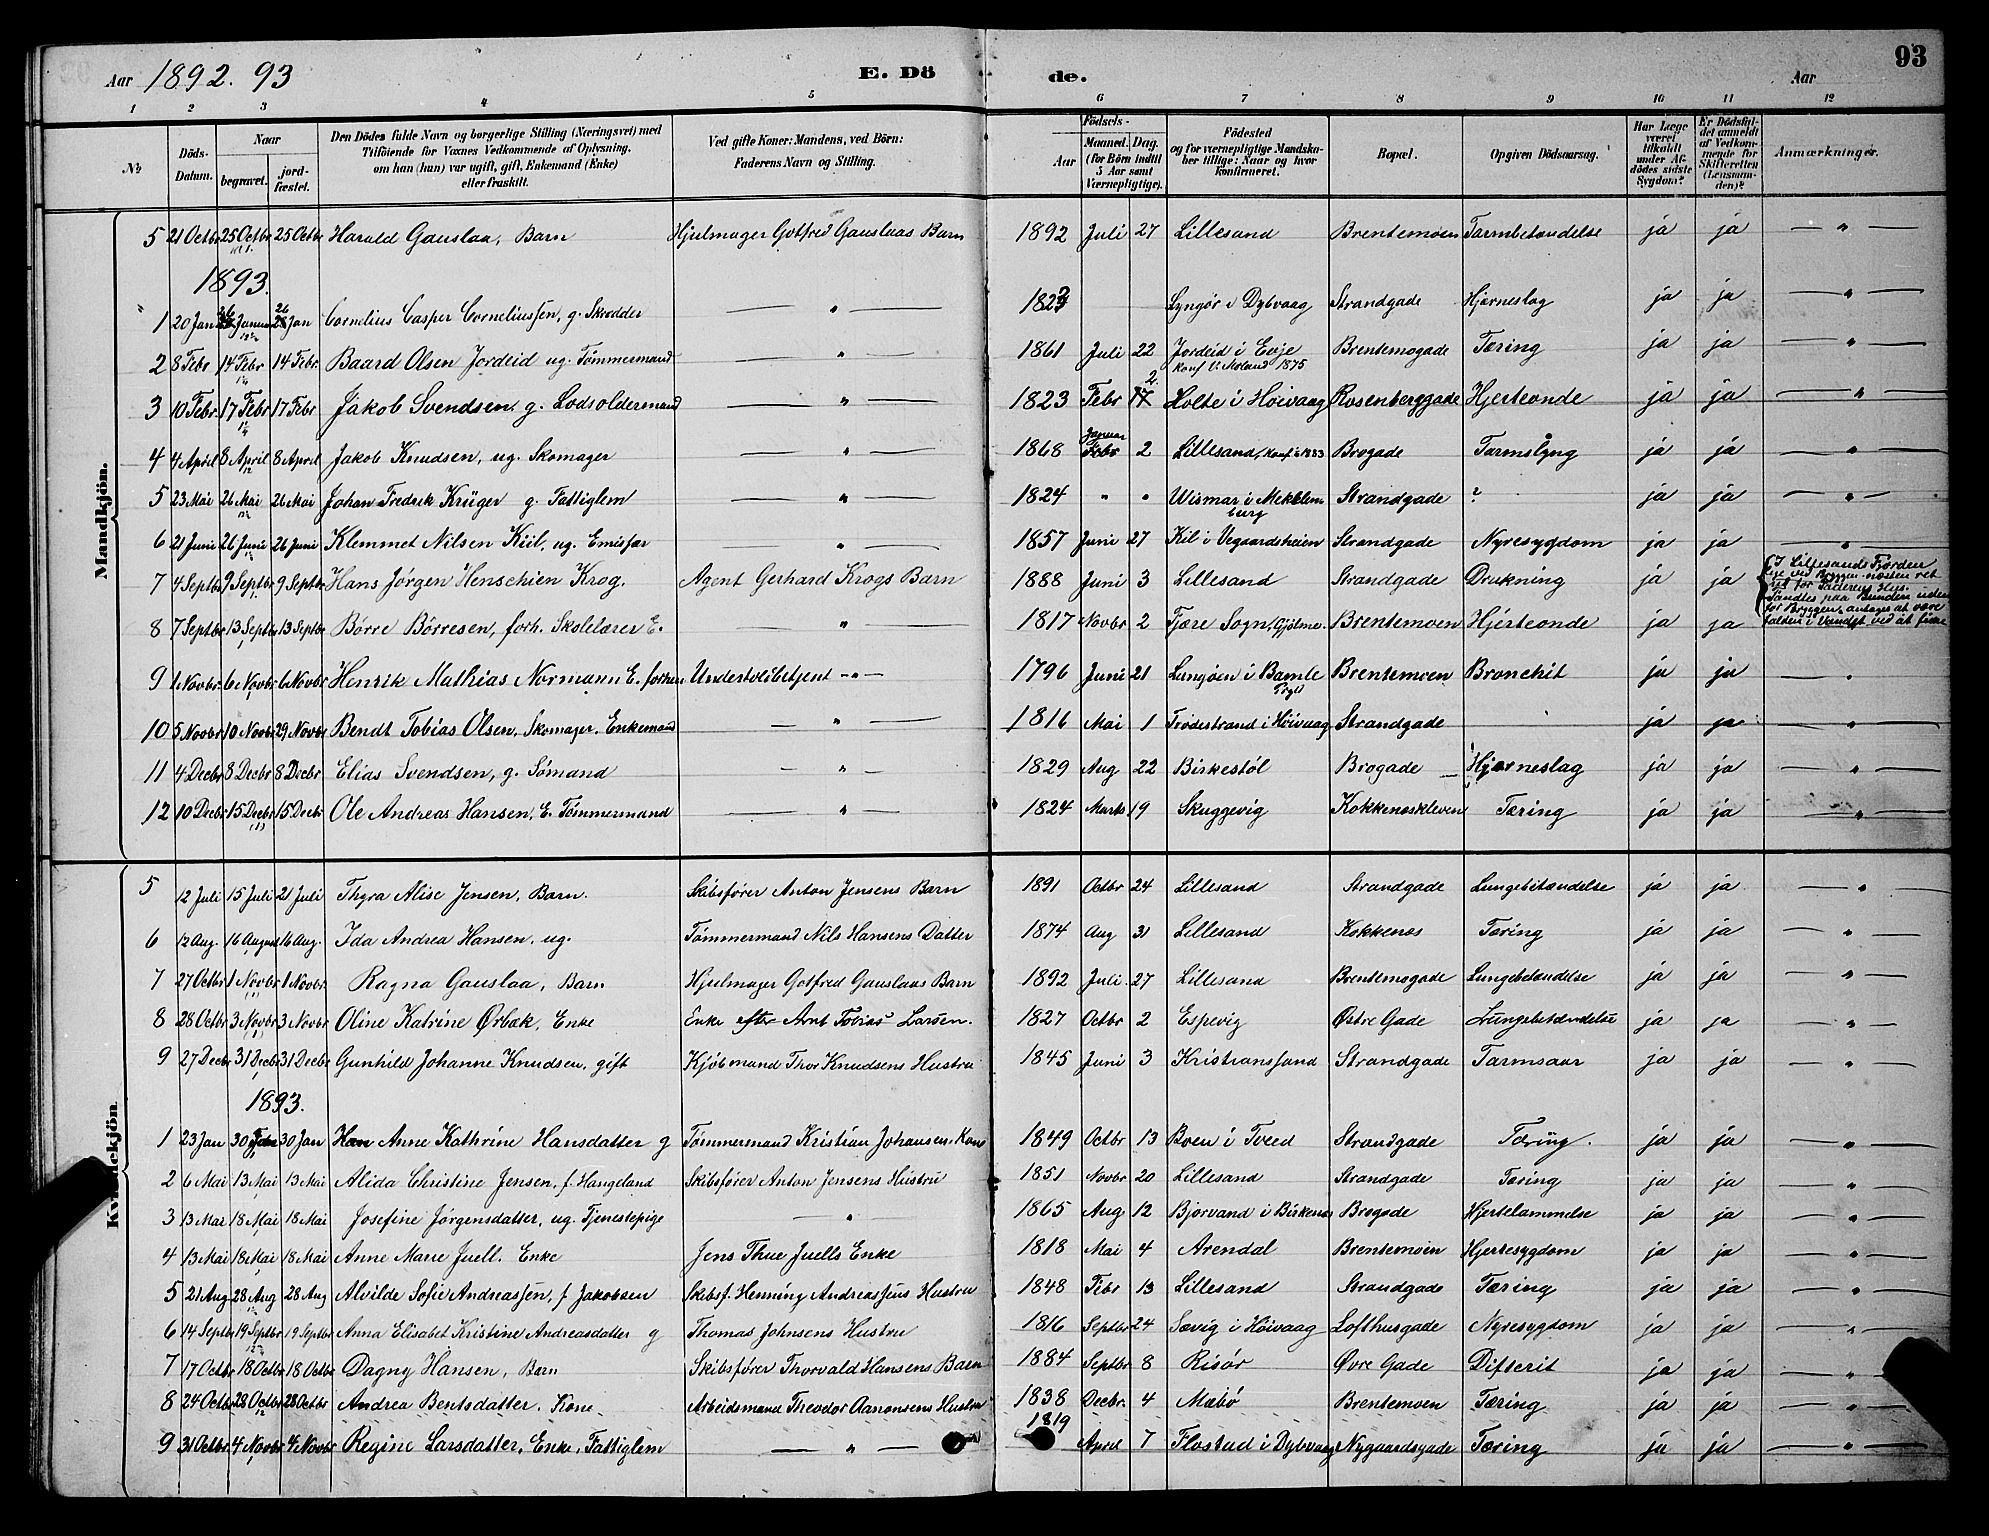 Aar 1892. 93 E. Dö de. Aar 93
1 2 3 4 5 6 7 8 9 10 11 12
No Döds-Datum. Naar begravet. jordfæstet. Den Dödes fulde Navn og borgerlige Stilling (Næringsvei) med Tilföiende for Voxnes Vedkommende af Oplysning, om han (hun) var ugift, gift, Enkemand (Enke) eller fraskilt. Ved gifte Koner: Mandens, ved Börn: Faderens Navn og Stilling. Födsels- Aar Maaned. Dag. (for Börn indtil 5 Aar samt Værnepligtige). Födested og for værnepligtige Mandskaber tillige: Naar og hvor konfirmeret. Bopæl. Opgiven Dödsaarsag. Har Læge været tilkaldt under Afdödes sidste Sygdom? Er Dödsfaldet anmeldt af Vedkommende for Skifteretten (Lensmanden)? Anmærkninger.
Mandkjön.
5 21 Octbr 25 Octbr 25 Octbr Harald Gauslaa, Barn Hjulmager Gotfred Gauslaas Barn 1892 Juli 27 Lillesand Brentemoen Tarmbetændelse ja ja — " —
1893.
1 20 Jan 26 Januar 26 Jan Cornelius Casper Corneliussen, g. Skrædder — " — 1823 Lyngör i Dybvaag Strandgade Hjerneslag ja ja — " —
2 8 Febr 14 Febr 14 Febr. Baard Olsen Jordeid ug. Tømmermand — " — 1861 Juli 22 Jordeid i Evje Konf. V. Moland 1875 Brentemogade Tæring ja ja — " —
3 10 Febr 17 Febr 17 Febr Jakob Svendsen. g. Lodsoldermand — " — 1823 Febr 2. Holte i Höivaag Rosenberggade Hjerteonde ja ja — " —
4 4 April 8 April 8 April Jakob Knudsen, ug. Skomager — " — 1868 Januar 2 Lillesand, Konf. 1883 Brogade Tarmslyng ja ja — " —
5 23 Mai 26 Mai 26 Mai Johan Fredrik Krüger g. Fattiglem — " — 1824 " " Wismar i Meklemburg Strandgade ? ja ja — " —
6 21 Juni 26 Juni 26 Juni Klemmet Nilsen Kiil, ug. Emisær — " — 1857 Juni 27 Kil i Vegaardsheien Strandgade Nyresygdom ja ja — " —
7 4 Septbr 9 Septbr 9 Septbr Hans Jörgen Henschien Krog. Agent Gerhard Krogs Barn 1888 Juni 3 Lillesand Strandgade Drukning ja ja I Lillesands Fjorden ved Byggen næsten ret for Faderens Hus. Fandtes paa Bunden uden for Bryggen, antages at være falden i Vandet ved at fiske
8 7 Septbr 13 Septbr 13 Septbr Börre Börresen, forh. Skolelærer E. — " — 1817 Novbr 2 Fjære Sogn, Brentemoen Hjerteonde ja ja
9 1 Novbr 6 Novbr 6 Novbr Henrik Mathias Normann E. forhen Undertoldbetjent — " — 1796 Juni 21 Langøen i Bamle Brentemoen Bronchit ja ja "
10 5 Novbr 10 Novbr 29 Novbr Bendt Tobias Olsen, Skomager. Enkemand — " — 1816 Mai 1 Frödestrand i Höivaag Strandgade ja ja — " —
11 4 Decbr 8 Decbr 8 Decbr Elias Svendsen, g. Sømand — " — 1829 Aug 22 Birkestöl Brogade Hjerneslag ja ja — " —
12 10 Decbr 15 Decbr 15 Decbr Ole Andreas Hansen, E. Tømmermand — " — 1824 Marts 19 Skuggevig Kokkenæskleven Tæring ja ja — " —
Kvindekjön
5 12 Juli 15 Juli 21 Juli Thyra Alise Jensen, Barn. Skibsfører Anton Jensens Barn 1891 Octbr 24 Lillesand Strandgade Lungebetændelse ja ja — " —
6 12 Aug. 16 August 16 Aug. Ida Andrea Hansen, ug. Tømmermand Nils Hansens Datter 1874 Aug 31 Lillesand Kokkenæs Tæring ja ja — " —
7 27 Octbr 1 Novbr 1 Novbr. Ragna Gauslaa, Barn Hjulmager Gotfred Gauslaas Barn 1892 Juli 27 Lillesand Brentemogade Lungebetændelse ja ja — " —
8 28 Octbr 3 Novbr 3 Novbr Oline Katrine Ørbæk, Enke Enke efter Arnt Tobias Larsen. 1827 Octbr 2 Espevig Østre Gade Lungebetændelse ja ja — " —
9 27 Decbr 31 Decbr 31 Decbr Gunhild Johanne Knudsen, gift Kjöbmand Thor Knudsens Hustru 1845 Juni 3 Kristianssand Strandgade Tarmsaar ja ja — " —
1893.
1 23 Jan 30 Jan 30 Jan Anne Kathrine Hansdatter g Tømmermand Kristian Johansen. Kone 1849 Octbr 13 Boen i Tveed Strandgade Tæring. ja ja — " —
2 6 Mai 13 Mai 13 Mai Alida Christine Jensen, f. Hangeland Skibsfører Anton Jensens Hustru 1851 Novbr 20 Lillesand Strandgade Tæring ja ja — " —
3 13 Mai 18 Mai 18 Mai Josefine Jörgensdatter, ug. Tjenestepige — " — 1865 Aug 12 Björvand i Birkenes Brogade Hjertelammelse ja ja — " —
4 13 Mai 18 Mai 18 Mai Anne Marie Juell. Enke Jens Thue Juells Enke 1818 Mai 4 Arendal Brentemoen Hjertesygdom ja ja — " —
5 21 Aug 28 Aug 28 Aug Alvilde Sofie Andreassen, f. Jakobsen Skibsf. Henning Andreassens Hustru 1848 Febr 13 Lillesand Strandgade Tæring ja ja — " —
6 14 Septbr 19 Septbr 19 Septbr Anna Elisabet Kristine Andreasdatter g Thomas Johnsens Hustru 1816 Septbr 24 Sævig i Höivaag Lofthusgade Nyresygdom ja ja — " —
7 17 Octbr 18 Octbr 18 Octbr Dagny Hansen, Barn Skibsfører Thorvald Hansens Barn 1884 Septbr 8 Risör Øvre Gade Difterit ja ja — " —
8 24 Octbr 28 Octbr 28 Octbr Andrea Bentsdatter, Kone Arbeidsmand Theodor Aanonsens Hustru 1838 Decbr. 4 Mæbö Brentemoen Tæring ja ja — " —
9 31 Octbr 4 Novbr 4 Novbr Regine Larsdatter, Enke, Fattiglem — " — 1819 April 7 Flostad i Dybvaag Nygaardsgade Tæring ja ja — " —